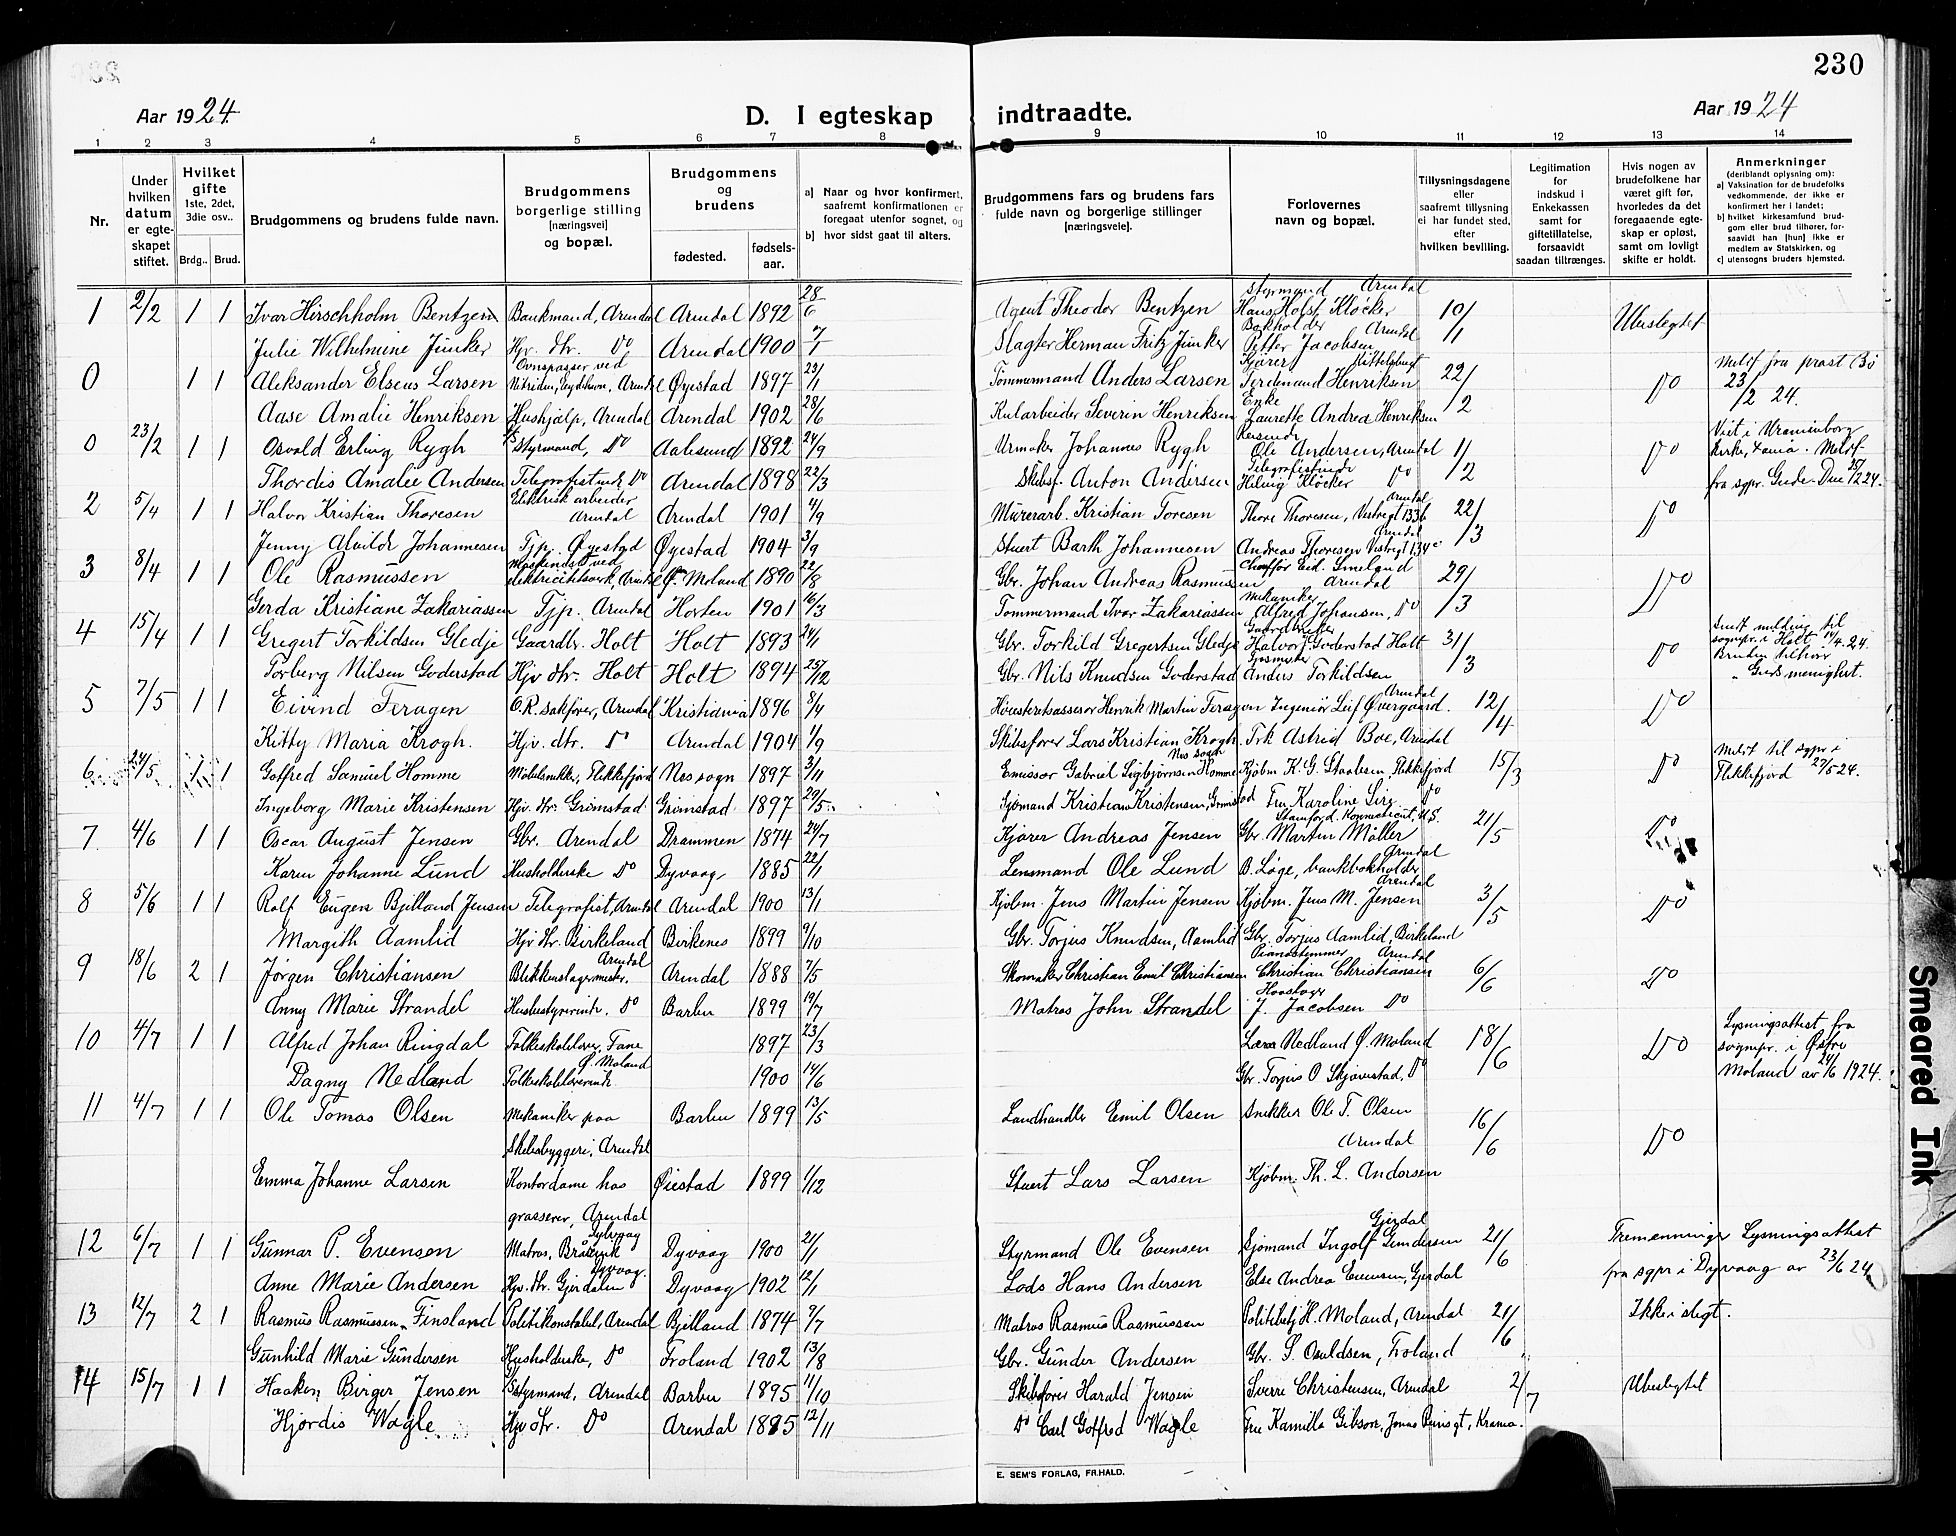 230
Aar 1924. D. I egteskap indtraadte. Aar 1924
1 2 3 4 5 6 7 8 9 10 11 12 13 14
Nr.
Under hvilken datum er egteskapet stiftet.
Hvilket gifte 1ste, 2det, 3die osv..
Brdg.. Brud.
Brudgommens og brudens fulde navn.
Brudgommens borgerlige stilling [næringsvei] og bopæl.
Brudgommens og brudens
fødested. fødsels-aar.
a) Naar og hvor konfirmert, saafremt konfirmationen er foregaat utenfor sognet, og
b) hvor sidst gaat til alters.
Brudgommens fars og brudens fars fulde navn og borgerlige stillinger [næringsveie].
Forlovernes navn og bopæl.
Tillysningsdagene eller saafremt tillysning ei har fundet sted, efter hvilken bevilling.
Legitimation for indskud i Enkekassen samt for giftetillatelse, forsaavidt saadan tiltrænges.
Hvis nogen av brudefolkene har været gift før, hvorledes da det foregaaende egteskap er opløst, samt om lovligt skifte er holdt.
Anmerkninger (deriblandt oplysning om):
a) Vaksination for de brudefolks vedkommende, der ikke er konfirmert her i landet;
b) hvilket kirkesamfund brudgom eller brud tilhører, forsaavidt han [hun] ikke er medlem av Statskirken, og
c) utensogns bruders hjemsted.
1 2/2 1 1 Ivar Hirschholm Bentzen Bankmand, Arendal Arendal 1892 28/6 Agent Theodor Bentzen Styrmand Arendal Hans Holst Kløcker 10/1 Ubeslegtet
Julie Wilhelmine Junker Hjv. dtr. Do Arendal 1900 Slagter Herman Fritz Junker Bokholder Arendal Petter Jacobsen
0 1 1 Aleksander Elseus Larsen Ovnspasser ved Nitriden, Eydehavn, Arendal Øyestad 1897 23/1 Tømmermand Anders Larsen Kjører Kittelsbugt Ferdenand Henriksen 22/2 Do Meldt fra prost Bö 23/2 24.
Aase Amalie Henriksen Hushjælp, Arendal Arendal 1902 28/6 Kularbeider Severin Henriksen Enke Laurette Andrea Henriksen
0 23/2 1 1 Osvald Erling Rygh Styrmand, Do Aalesund 1892 24/9 Urmaker Johannes Rygh Reisende Ole Andersen, Arendal 1/2 Do Viet i Uranienborg kirke, Xania. Meldt
Thordis Amalie Andersen Telegrafistinde Do Arendal 1898 22/3 Skibsf. Anton Andersen Telegrafistinde Do Helwig Kløcker fra sgpr. Gude. Den 28/2 24.
2 5/4 1 1 Halvor Kristian Thoresen Elektrisk arbeider Arendal Arendal 1901 4/9 Murerarb. Kristian Toresen Thore Thoresen, Vestregt 133b Arendal 22/3 Do
Jenny Alvilde Johannesen Tjp. Øyestad Øyestad 1904 3/9 Stuert Barth Johannesen Andreas Thoresen Vestregt 134c Arendal
3 8/4 1 1 Ole Rasmussen Maskinist ved elektricitetsverk, Arendal Ø. Moland 1890 22/8 Gbr. Johan Andreas Rasmussen Chauffør Eid. Smeland Arendal 29/3 Do
Gerda Kristiane Zakariassen Tjp. Arendal Horten 1901 16/3 Tømmermand Ivar Zakariassen Mekaniker Alfred Johansen, Do
4 15/4 1 1 Gregert Torkildsen Gledje Gaardbr. Holt Holt 1893 24/1 Gbr. Torkild Gregertsen Gledje Gaardbruker Halvor J. Goderstad Holt 31/3 Do Sendt melding til sognepr. i Holt 14/4 24.
Torberg Nilsen Goderstad Hjv dtr. Holt Holt 1894 25/12 Gbr. Nils Knudsen Goderstad Anders Torkildsen Bruden tilhører "Guds menighet.
5 7/5 1 1 Eivind Feragen O.R. sakfører, Arendal Kristiania 1896 8/4 Høiesteretsassessor Henrik Martin Feragen Ingeniør Leif Övergaard. Arendal 12/4 Do
Kitty Maria Krogh. Hjv. dtr. Do Arendal 1904 1/9 Skibsfører Lars Kristian Krogh. Frk Astrid Boe, Arendal
6 24/5 1 1 Gotfred Samuel Homme Møbelsnekker, Flekkefjord Nes sogn 1897 3/11 Emissær Gabriel Sigbjørnsen Homme Nes sogn Kjøbm K. G. Staalesen, Flekkefjord 15/3 Do Meldt til sgpr i Flekkefjord 27/5 24.
Ingeborg Marie Kristensen Hjv. dtr. Grimstad Grimstad 1897 29/5 Sjømand Kristian Kristensen, Grimstad Fru Karoline Sire Do
7 4/6 1 1 Oscar August Jensen Gbr. Arendal Drammen 1874 24/7 Kjører Andreas Jensen Stamford, Konnecticut, U.S. Gbr. Martin Møller 21/5 Do
Karen Johanne Lund Husholderske Do Dyvaag 1885 22/1 Lensmand Ole Lund B. Løge, bankbokholder Arendal
8 5/6 1 1 Rolf Eugen Bjelland Jensen Telegrafist, Arendal Arendal 1900 13/1 Kjøbm. Jens Martin Jensen Kjøbm. Jens M. Jensen Arendal 3/5 Do
Margith Aamlid Hjv dtr. Birkeland Birkenes 1899 9/10 Gbr. Torjus Knudsen, Aamlid Gbr. Torjus Aamlid, Birkeland
9 18/6 2 1 Jørgen Christiansen Blikkenslagermester, Arendal Arendal 1888 7/5 Skomaker Christian Emil Christiansen Pianostemmer Arendal Christian Christiansen 6/6 Do
Anny Marie Strandel Husbestyrerinde. Do Barbu 1899 19/7 Matros John Strandel J. Jacobsen Do
10 4/7 1 1 Alfred Johan Ringdal Folkeskolelærer, Fane 1897 23/3 Lærer Nedland Ø. Moland 18/6 Do Lysningsattest fra sognepr. i Østre
Dagny Nedland Folkeskolelærerinde Ø. Moland 1900 14/6 Gbr. Torjus O Skjævestad, Do Moland av 24/6 1924.
11 4/7 1 1 Ole Tomas Olsen Mekaniker paa Skibsbyggeri, Arendal Barbu 1899 13/5 Landhandler Emil Olsen Snekker Ole T. Olsen Arendal 16/6 Do
Emma Johanne Larsen Kontordame hos grasserer, Arendal Øiestad 1899 1/12 Stuert Lars Larsen Kjøbm. Th. L. Andersen
12 6/7 1 1 Gunnar P. Evensen Matros, Dyvaag 1900 21/1 Styrmand Ole Evensen Sjømand Ingolf Gundersen Gjerdal 21/6 Tremenninge Lysningsattest
Anne Marie Andersen Hjv. dtr. Gjerdalen Dyvaag. Dyvaag 1902 12/1 Lods Hans Andersen Else Andrea Evensen, Gjerdal fra sgpr i Dyvaag av 23/6 24
13 12/7 2 1 Rasmus Rasmussen Finsland Politikonstabel, Arendal Bjelland 1874 9/7 Matros Rasmus Rasmussen Politibetj H. Moland, Arendal 21/6 Ikke i slegt.
Gunhild Marie Gundersen Husholderske, Do Froland 1902 13/8 Gbr. Gunder Andersen Gbr. S. Osuldsen, Froland
14 15/7 1 1 Haaken Birger Jensen Styrmand, Arendal Barbu 1895 11/10 Skibsfører Harald Jensen Sverre Christensen, Arendal 2/7 Ubeslegtet
Hjørdis Wagle Hjv dtr. Do Arendal 1895 12/11 Do Carl Gotfred Wagle Fru Kamilla Gibson, Jonas Reinsgt, Krania.
E. SEM'S FORLAG, FR.HALD.
Smeared Ink